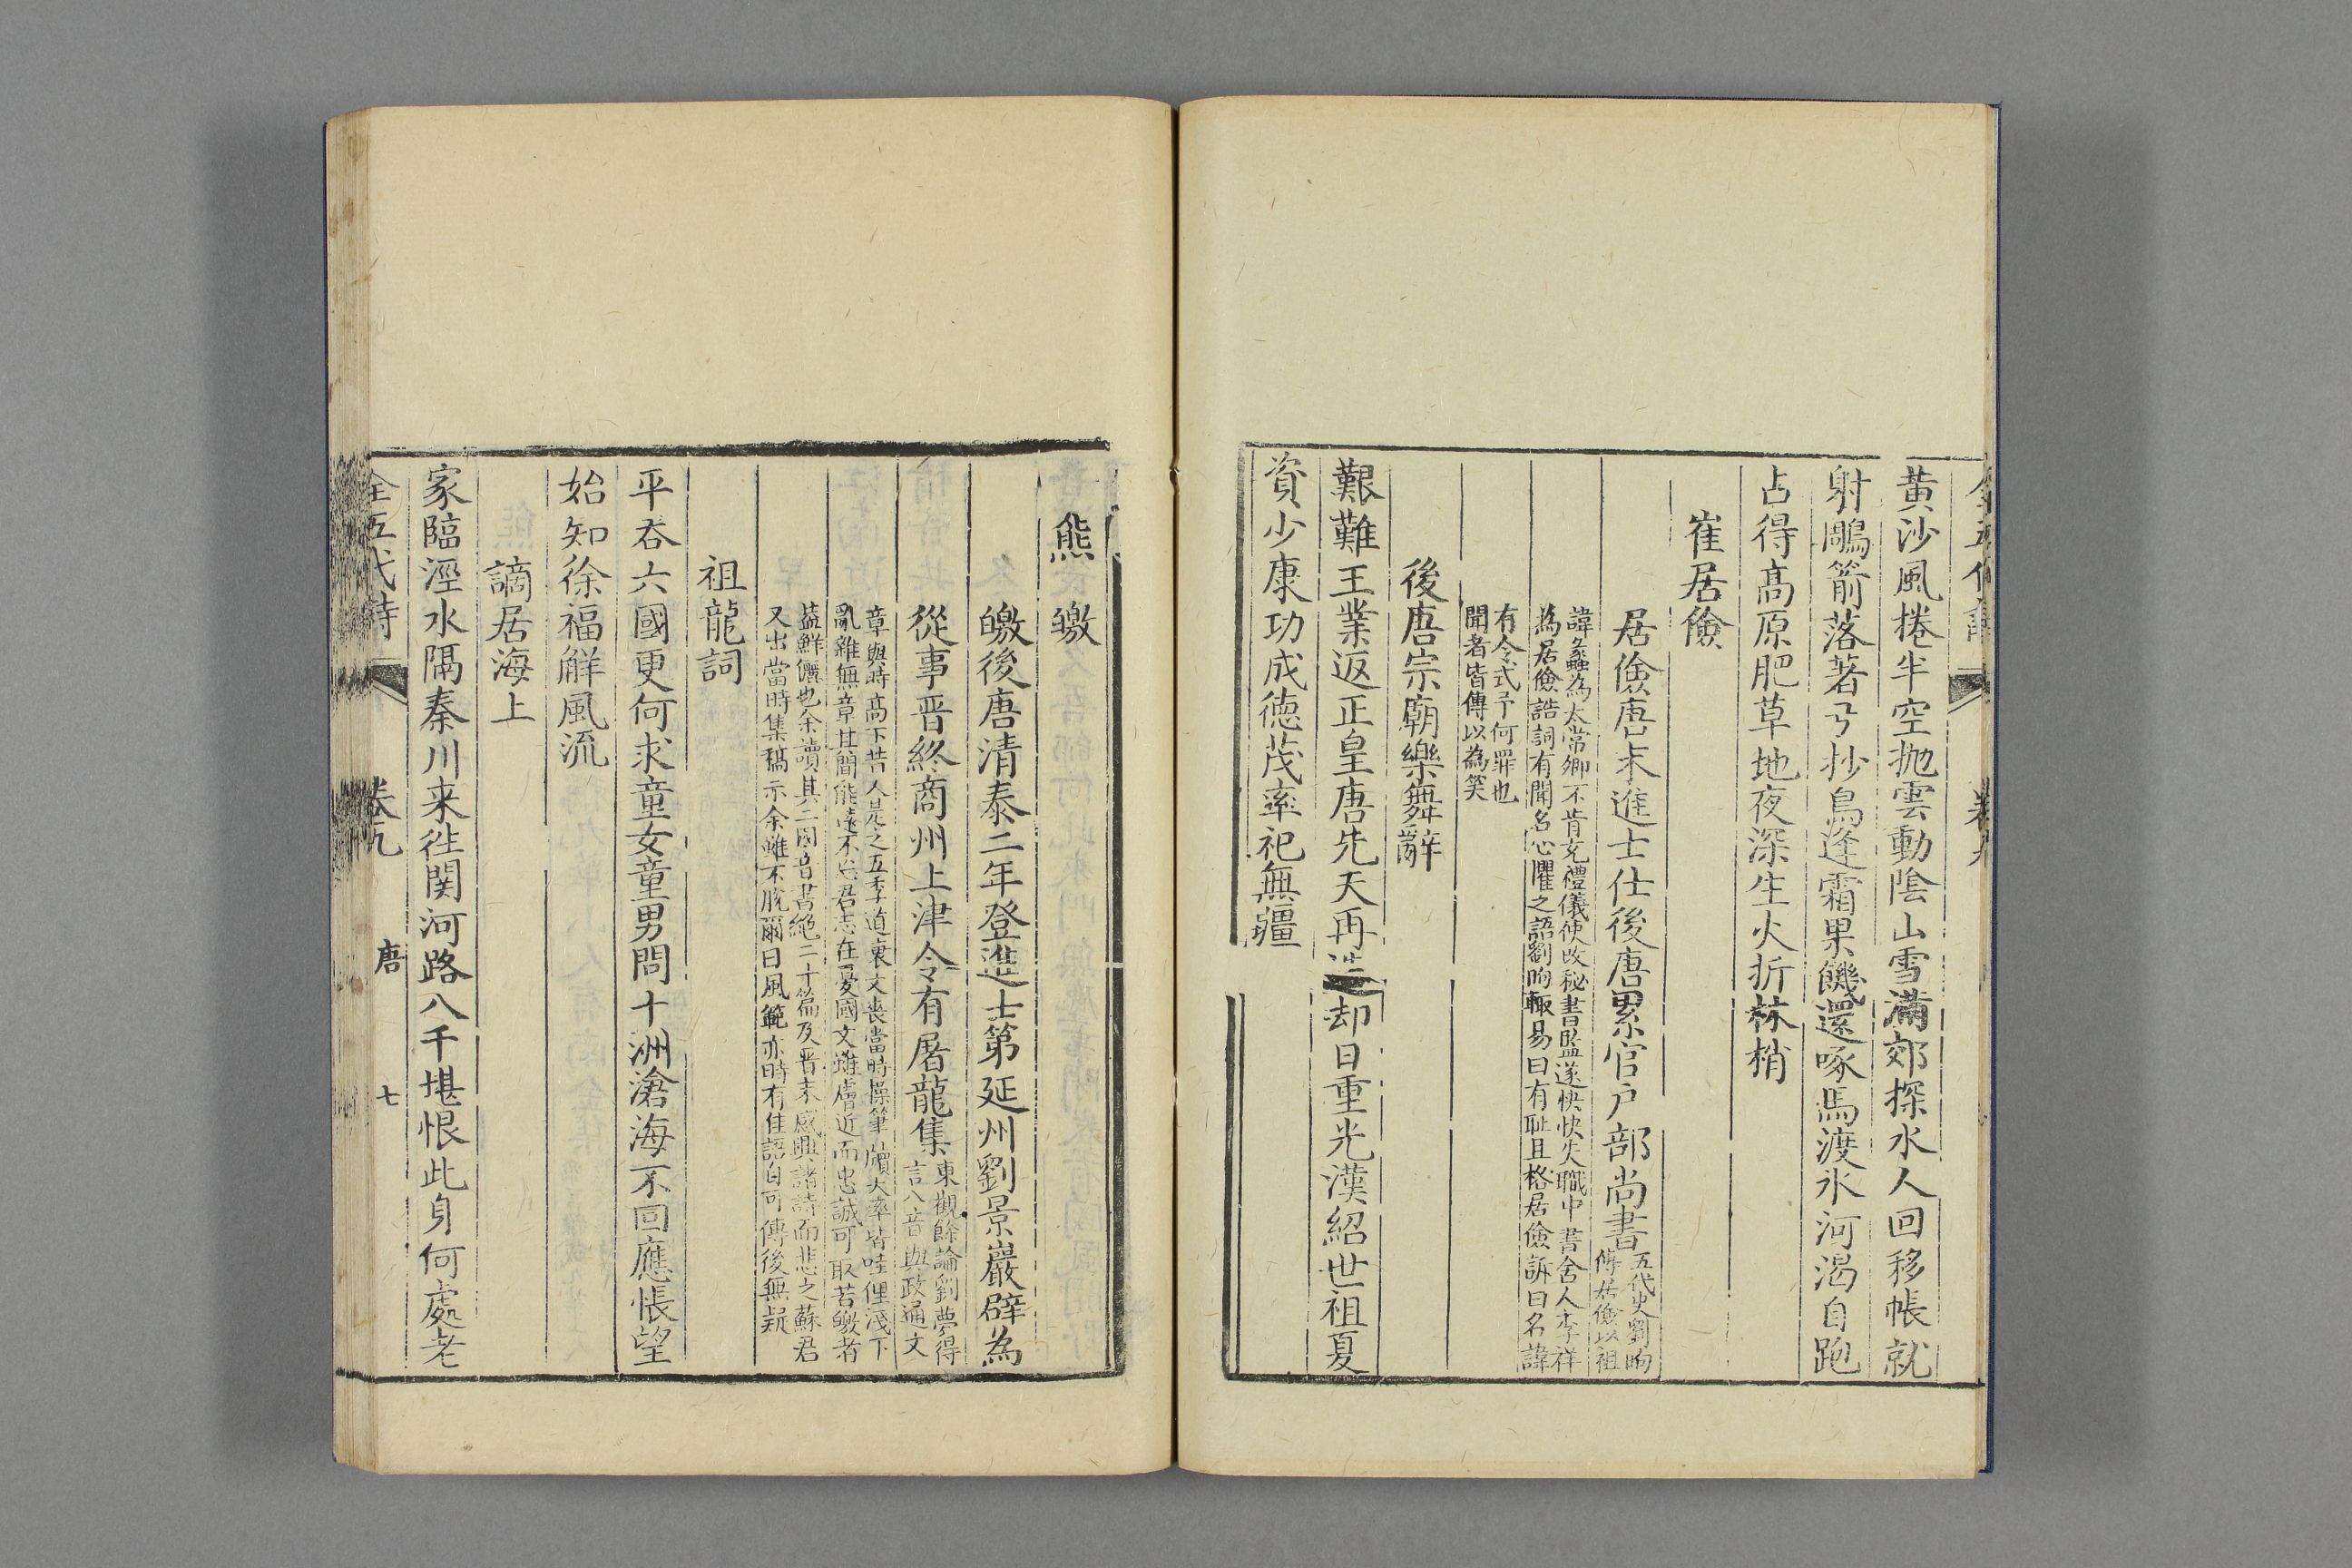 黄沙風捲半空抛雲動陰山雪滿郊探水人回移帳就
射鵰箭落著弓抄鳥逢霜果饑還啄馬渡氷河渴自跑
占得髙原肥草地夜深生火折林梢
崔居儉
居儉唐末進士仕後唐累官户部尚書
五代史劉昫
傳居儉以祖
諱蠡為太常卿不肯充禮儀使改秘書監遂怏怏失職中書舍人李祥
為居儉誥詞有聞名心懼之語劉昫輙易曰有耻且格居儉訴曰名諱
有令式予何罪也
聞者皆傳以為笑
後唐宗廟樂舞辭
艱難王業返正皇唐先天再造却日重光漢紹世祖夏
資少康功成德茂率祀無疆
熊皦
皦後唐清泰二年登進士第延州劉景巖辟為
從事晋終商州上津令有屠龍集
東觀餘論劉夢得
言八音與政通文
章與時髙下昔人是之五季道衰文喪當時操筆牘大率皆哇俚淺下
亂雜無章其簡能遠不忘君志在憂國文雖膚近而忠誠可取若皦者
葢鮮儷也余讀其二國音書絶二十篇及晋末感興諸詩而悲之蘇君
又出當時集稿示余雖不脫爾日風範亦時有佳語自可傳後無疑
祖龍詞
平吞六國更何求童女童男問十洲滄海不回應悵望
始知徐福解風流
謫居海上
家臨涇水隔秦川来往関河路八千堪恨此身何處老
全五代詩 卷九 唐 七